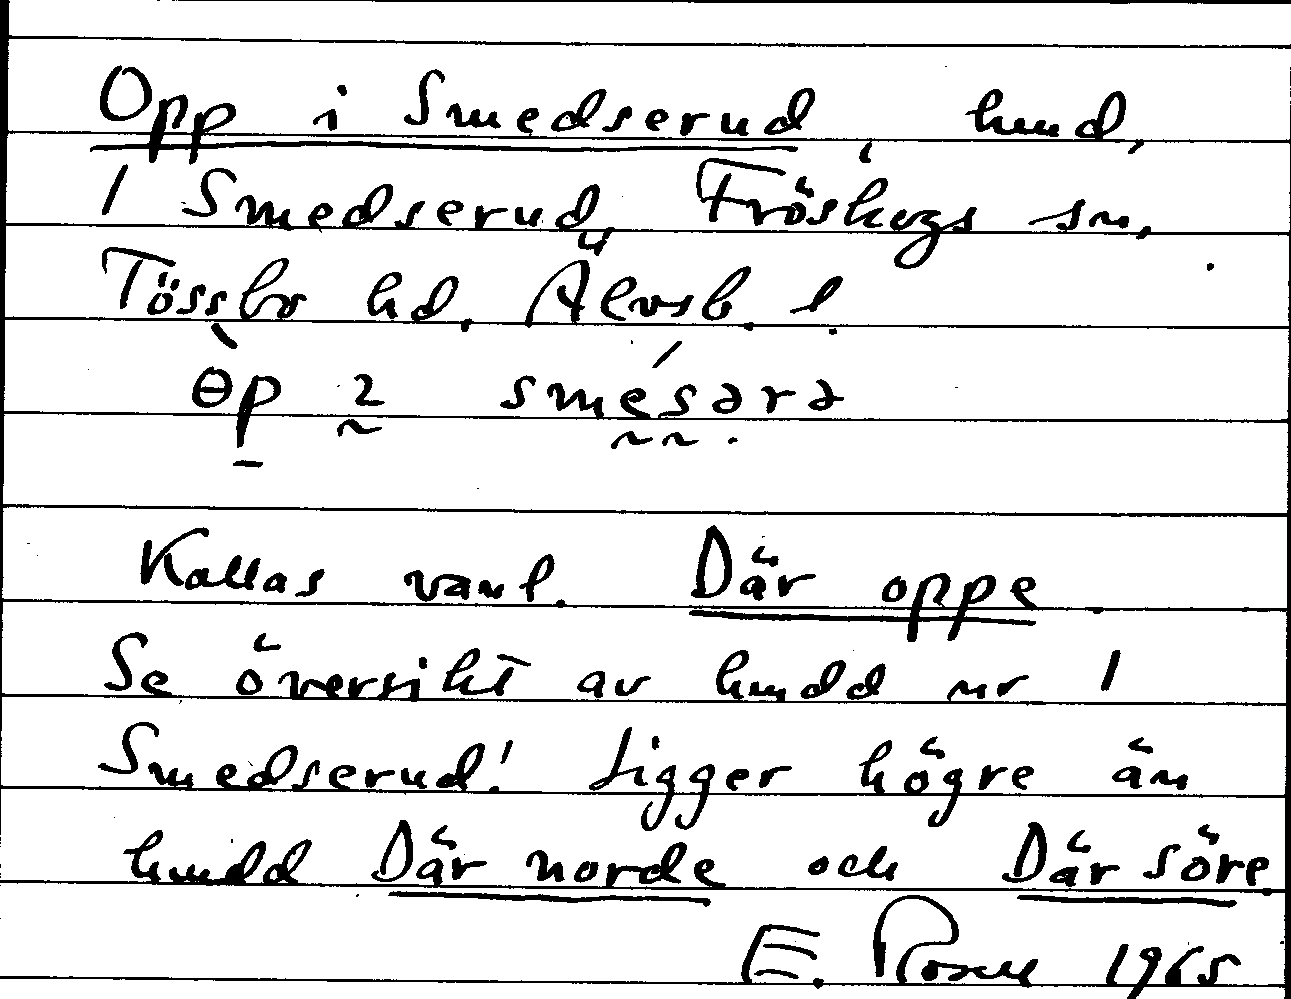 Opp i Smedserud, hmd,
1 Smedserud, Fröskogs sn,
Tössbo hd, Älvsb. l.
Kallas vanl. Där oppe.
Se översikt av hmdd nr 1
Smedserud! Ligger högre än
hmdd Där norde och Där söre.
E. Rosell 1965